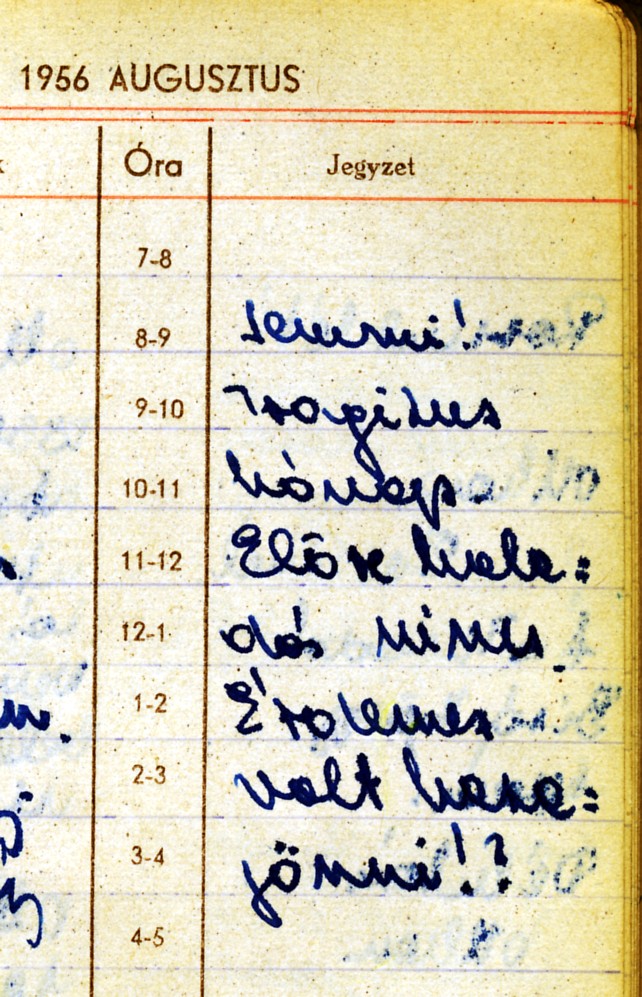 1956 AUGUSZTUS
Óra Jegyzet
7-8
8-9 Semmi!
9-10 Tragikus
10-11 hónap.
11-12 Előre hala=
12-1 dás nincs.
1-2 Érdemes
2-3 volt haza=
3-4 jönni!?
4-5